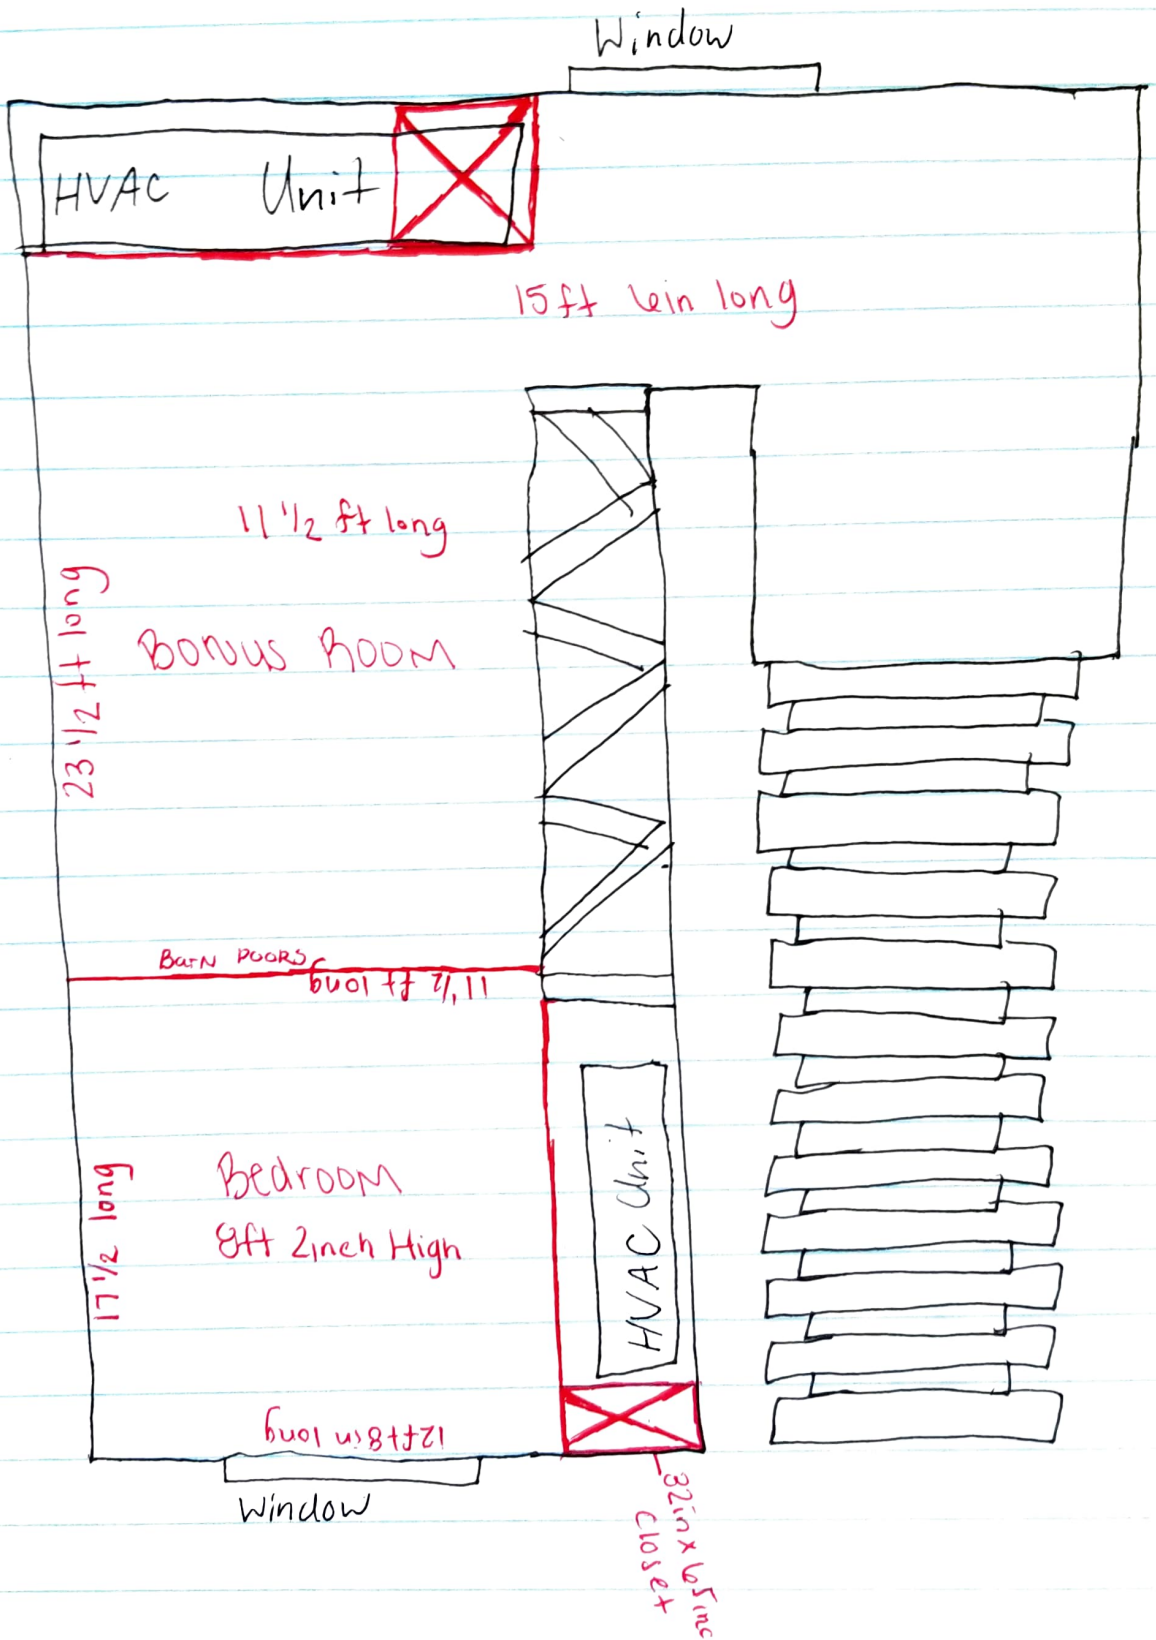 Window
HVAC Unit
15ft 6in long
11 1/2 ft long
23 1/2 ft long
Bonus Room
Barn Doors
11 1/2 ft long
Bedroom
8ft 2inch High
17 1/2 long
HVAC Unit
12ft8in long
Window
32in x 65inc
Closet